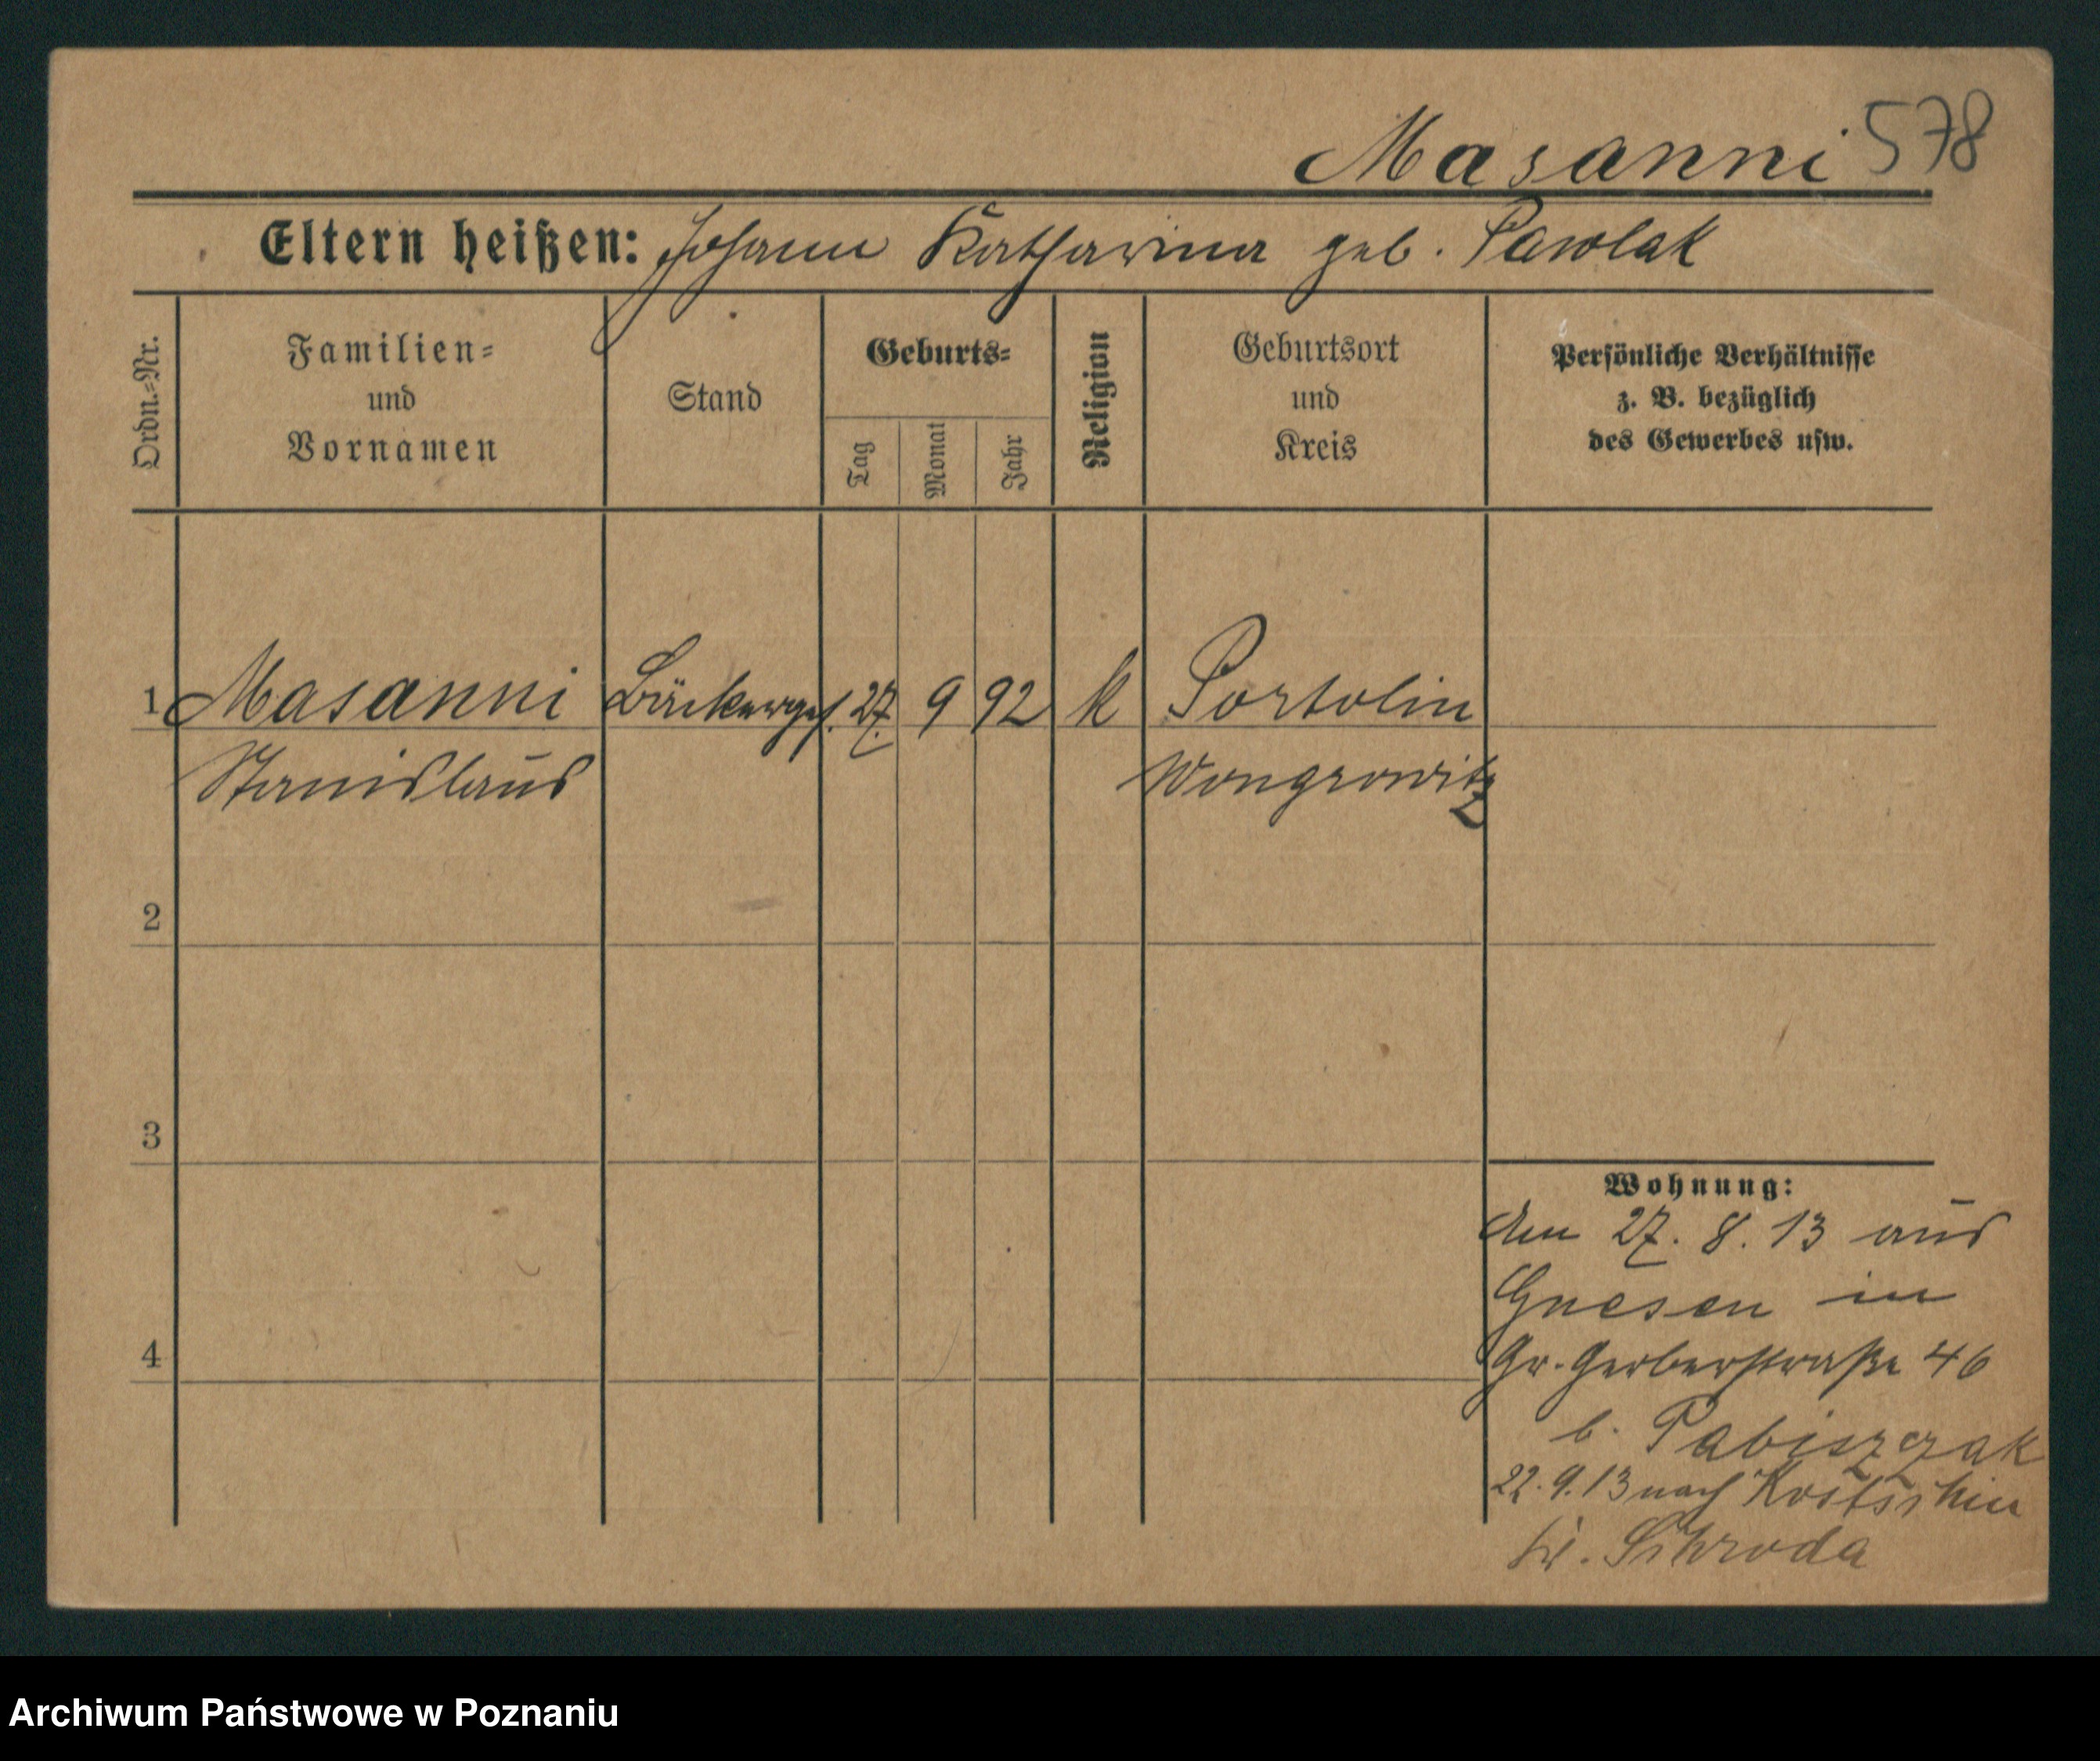 Masanni 578
Eltern heißen: Johann Katharina geb. Pawlak
Ordn.=Nr.
Familien=
und
Vornamen
Stand
Geburts=
Tag
Monat
Jahr
Religion
Geburtsort
und
Kreis
Persönliche Verhältnisse
z. B. bezüglich
des Gewerbes usw.
1 Masanni Bäckerges. 27. 9 92 k Postolin
Stanislaus Wongrowitz
2
3
4
Wohnung:
den 27. 8. 13 aus
Gnesen in
Gr. Gerberstraße 46
b. Pabiszczak
22. 9. 13 nach Kostschin
Schroda
Archiwum Państwowe w Poznaniu